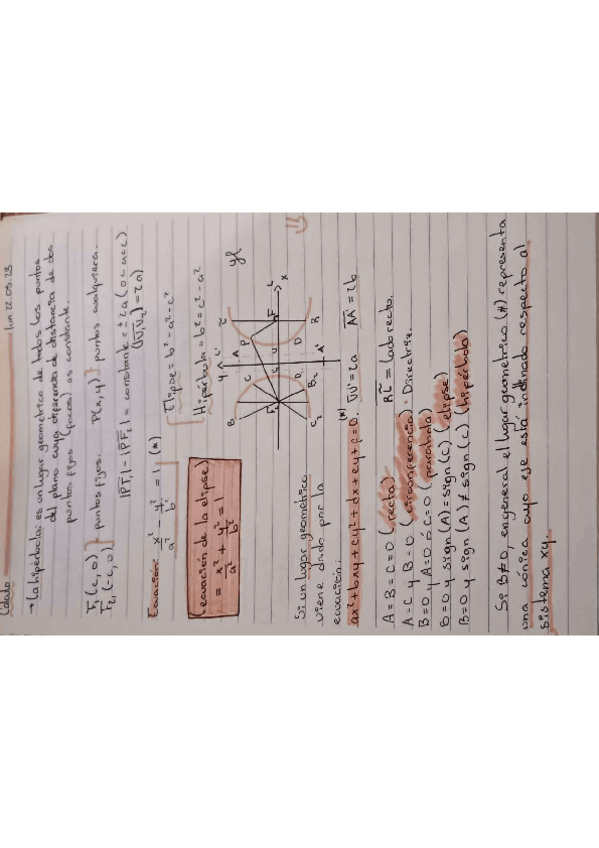 lun 22.05.23
→ La hipérbola: es un lugar geométrico de todos los puntos
del plano cuya diferencia de distancia de dos
puntos fijos (focos) es constante.
F₁ (c, 0) } puntos fijos. P(x, y) } puntos cualquiera.
F₂ (-c, 0)
|PF₁| - |PF₂| = constante = ± 2a (0<a<c)
(V₁V₂) = 2a)
Ecuación: x²/a² - y²/b² = 1 (*)
Elipse = b² = a² - c²
Hipérbola = b² = c² - a²
(ecuación de la elipse)
= x²/a² + y²/b² = 1
Si un lugar geométrico
viene dado por la
ecuación:
ax² + bxy + cy² + dx + ey + f = 0. (*) VV' = 2a AA' = 2b
A = B = C = 0 (recta) = lado recto.
A = C y B = 0 (circunferencia) = Directriz.
B = 0 y A = 0 ó C = 0 (parábola)
B = 0 y sign (A) = sign (C) (elipse)
B = 0 y sign (A) ≠ sign (C) (hipérbola)
Si B ≠ 0, en general el lugar geométrico (*) representa
una cónica cuyo eje está inclinado respecto al
sistema xy.